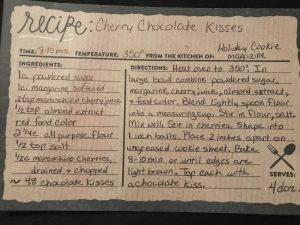 recipe: Cherry Chocolate Kisses
TIME: 8-10 min. TEMPERATURE: 350° FROM THE KITCHEN OF: Holiday Cookie magazine
INGREDIENTS:
1c powdered sugar
1c. margarine, softened
2tsp maraschino cherry juice
1/2 tsp almond extract
red food color
2 1/4c all purpose flour
1/2 tsp salt
maraschino cherries,
drained + chopped
~ 48 chocolate kisses
DIRECTIONS: Heat oven to 350°. In
large bowl combine powdered sugar,
margarine, cherry juice, almond extract,
+ food color. Blend. Lightly spoon flour
into a measuring cup. Stir in flour, salt.
Mix well. Stir in cherries. Shape into
1 inch balls. Place 2 inches apart on
ungreased cookie sheet. Bake
8-10 min or until edges are
light brown. Top each with
a chocolate kiss.
SERVES:
4 doz.